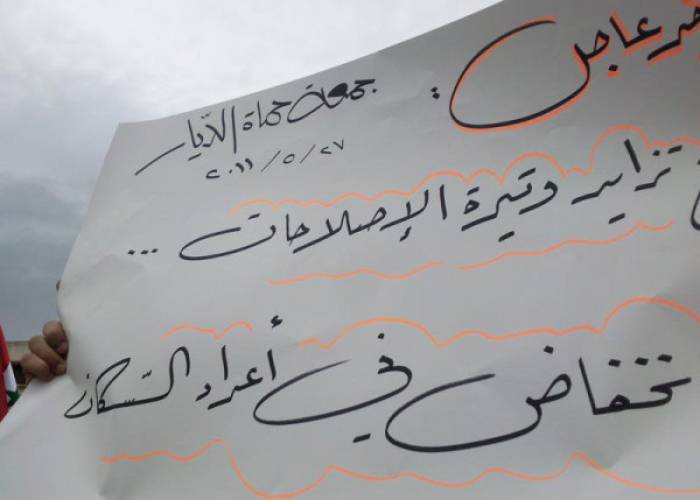 خبر عاجل :
جمعة حماة الديار
٢٠١١/٥/٢٧
تزايد وتيرة الإصلاحات ...
نخفاض في أعداد السّكان